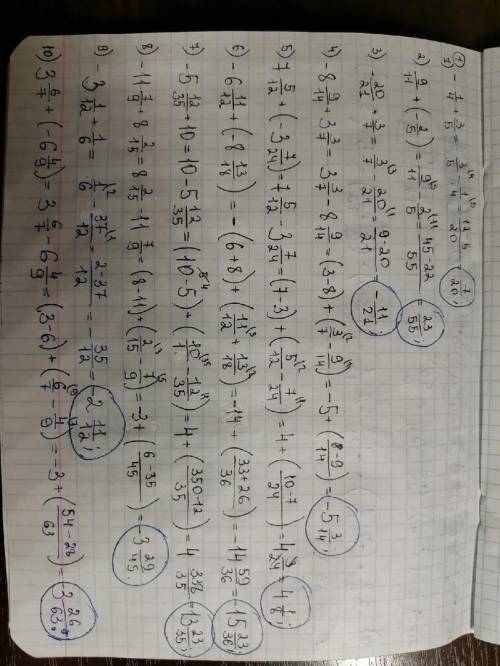 1) -1/4 + 3/5 = 3/5 - 1/4 = 12-5/20 = 7/20;
2) 9/11 + (-2/5) = 9/11 - 2/5 = 45-22/55 = 23/55;
3) -20/21 + 3/7 = 3/7 - 20/21 = 9-20/21 = -11/21;
4) -8 9/14 + 3 3/7 = 3 3/7 - 8 9/14 = (3-8) + (3/7 - 9/14) = -5 + (6-9/14) = -5 3/14;
5) 7 5/12 + (-3 7/24) = 7 5/12 - 3 7/24 = (7-3) + (5/12 - 7/24) = 4 + (10-7/24) = 4 3/24 = 4 1/8;
6) -6 11/12 + (-8 13/18) = -(6+8) + (11/12 + 13/18) = -14 + (33+26/36) = -14 59/36 = -15 23/36;
7) -5 12/35 + 10 = 10 - 5 12/35 = (10-5) + (10/1 - 12/35) = 4 + (350-12/35) = 4 338/35 = 13 23/35;
8) -11 7/9 + 8 2/15 = 8 2/15 - 11 7/9 = (8-11) + (2/15 - 7/9) = -3 + (6-35/45) = -3 29/45.
9) -3 1/12 + 1/6 = 1/6 - 37/12 = 2-37/12 = -35/12 = -2 11/12;
10) 3 6/7 + (-6 4/9) = 3 6/7 - 6 4/9 = (3-6) + (6/7 - 4/9) = -3 + (54-28/63) = -3 26/63;